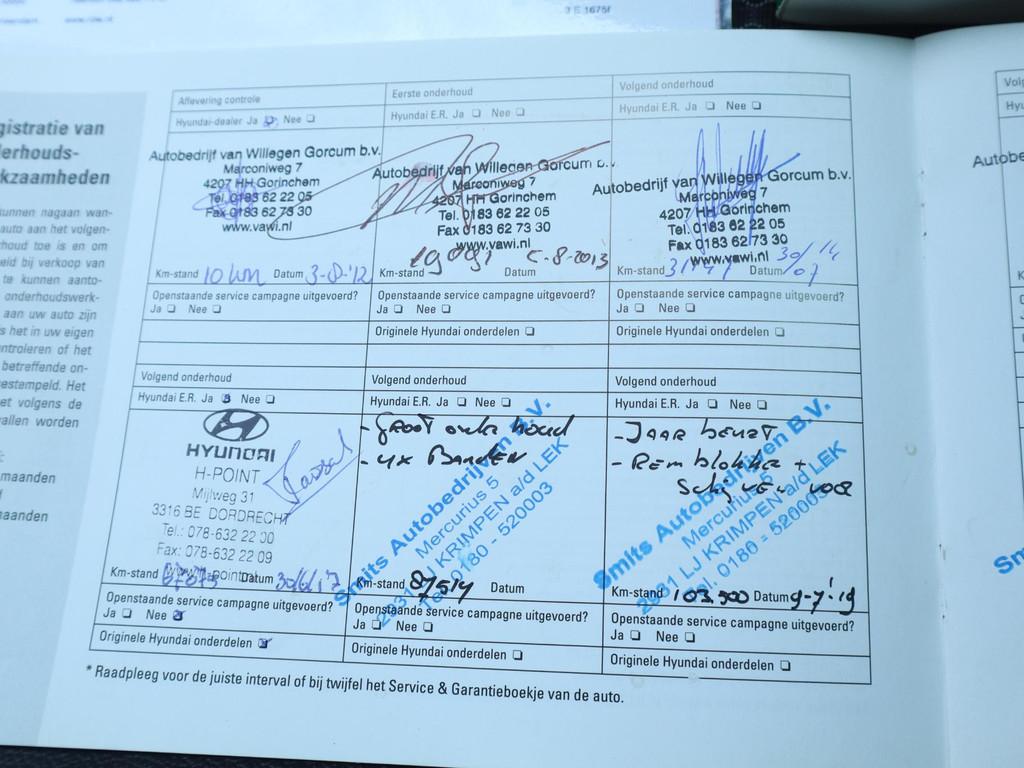 3 E 1675f
gistratie van
lerhouds-
kzaamheden
unnen nagaan wan-
auto aan het volgen-
houd toe is en om
eid bij verkoop van
te kunnen aanto-
onderhoudswerk-
aan uw auto zijn
s het in uw eigen
ntroleren of het
betreffende on-
estempeld. Het
et volgens de
vallen worden
maanden
naanden
Aflevering controle
Hyundai-dealer Ja Nee
Autobedrijf van Willegen Gorcum b.v.
Marconiweg 7
4207 HH Gorinchem
Tel. 0183 62 22 05
Fax 0183 62 73 30
www.vawi.nl
Km-stand 10 km Datum 3-8-'12
Openstaande service campagne uitgevoerd?
Ja Nee
Eerste onderhoud
Hyundai E.R. Ja Nee
Autobedrijf van Willegen Gorcum b.v.
Marconiweg 7
4207 HH Gorinchem
Tel. 0183 62 22 05
Fax 0183 62 73 30
www.vawi.nl
Km-stand Datum 5-8-2013
Openstaande service campagne uitgevoerd?
Ja Nee
Originele Hyundai onderdelen
Volgend onderhoud
Hyundai E.R. Ja Nee
Autobedrijf van Willegen Gorcum b.v.
Marconiweg 7
4207 HH Gorinchem
Tel. 0183 62 22 05
Fax 0183 62 73 30
www.vawi.nl
Km-stand Datum 30/07 14
Openstaande service campagne uitgevoerd?
Ja Nee
Originele Hyundai onderdelen
Volgend onderhoud
Hyundai E.R. Ja Nee
HYUNDAI
H-POINT
Mijlweg 31
3316 BE DORDRECHT
Tel.: 078-632 22 00
Fax: 078-632 22 09
Km-stand Datum 30/6/17
Openstaande service campagne uitgevoerd?
Ja Nee
Originele Hyundai onderdelen
Volgend onderhoud
Hyundai E.R. Ja Nee
- Groot onderhoud
- 4x Banden
Smits Autobedrijven B.V.
Mercurius 5
2931 LJ KRIMPEN a/d LEK
Tel. 0180 - 520003
Km-stand 87514 Datum
Openstaande service campagne uitgevoerd?
Ja Nee
Originele Hyundai onderdelen
Volgend onderhoud
Hyundai E.R. Ja Nee
- Jaar beurt
- Remblokken +
Schijven voor
Smits Autobedrijven B.V.
Mercurius 5
2931 LJ KRIMPEN a/d LEK
Tel. 0180 - 520003
Km-stand 103.500 Datum 9-7-'19
Openstaande service campagne uitgevoerd?
Ja Nee
Originele Hyundai onderdelen
* Raadpleeg voor de juiste interval of bij twijfel het Service & Garantieboekje van de auto.
Autobe